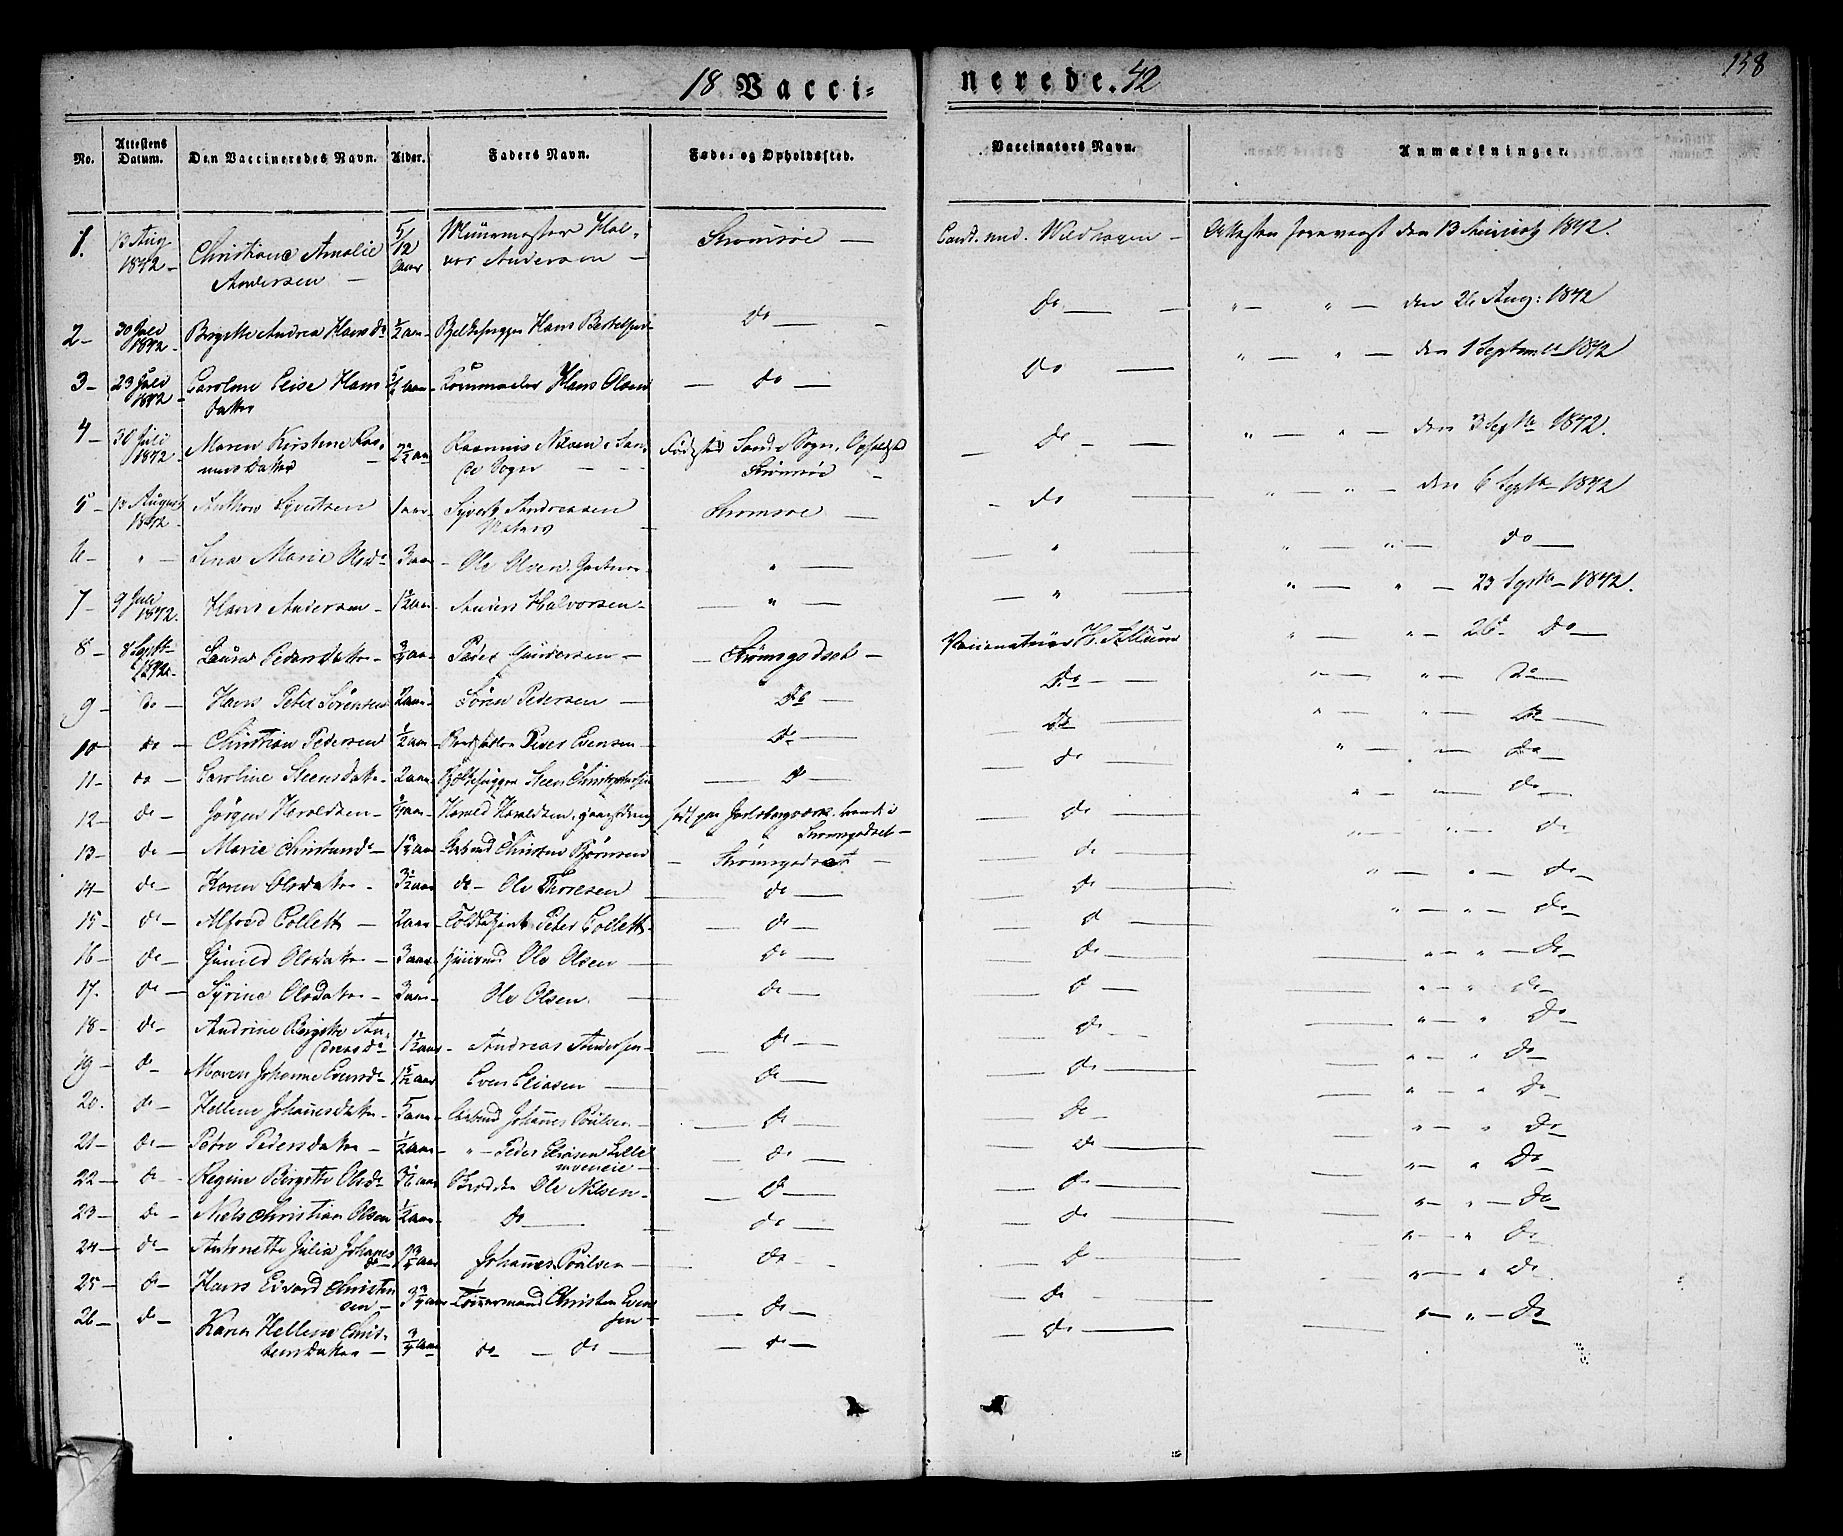 158
18 Vacci- nerede. 42
No. Attestens Datum. Den Vaccineredes Navn. Alder. Faders Navn. Føde- og Opholdssted. Vaccinators Navn. Anmærkninger.
1. 13 Aug 1842 Christiane Amalie Andersen 5/12 aar Muurmester Halvor Andersen Strømsøe Cand. med. Wildhagen Attesten forevergt den 13 1842.
2 30 Juli 1842 Bergitte Andrea Hansd. 1/2 aar Hans Bertelsen Do Do " " den 26 Aug: 1842
3 23 Juli 1842 Caroline Leise Hansdatter aar Hans Olsen do Do " " den 1 September 1842
4 30 Juli 1842 Maren Kirstine Rasmusdatter 2 1/2 aar Rasmus Nilsen i Sande Sogn Fødested Sande Sogn, Opholdst Strømsøe Do " " den 3 Septbr 1842.
5 13 August 1842 Anthon Syvertsen 1 aar Syvert Andreasen Strømsøe do " " den 6 Septbr 1842
6 " Lina Marie Olsd. 3 aar Ole Olsen, Gartner " " " " do
7 9 Juli 1842. Hans Andersen 1 1/2 aar Anders Halvorsen " " " " 23 Septbr 1842.
8 8 Septbr 1842. Laura Pedersdatter 3/4 aar Peder Gundersen Strømsgodset Vaccinateur H. Tellum " " 26 Do
9 do Hans Peter Sørensen 2 aar Søren Pedersen Do Do " " Do
10 do Christian Pedersen 1/2 aar Peder Evensen do Do " " Do
11 do Caroline Steensdatter 2 aar Steen Christophersen do do " " do
12 do Jørgen Haroldsen aar Harold Haroldsen, født paa Jarlsbergværk, boende i Strømsgodset do " " do
13 do Marie Christensd. aar Arbmd Christen Bjørnsen Strømsgodset do " " do
14 do Karen Olsdatter 3 1/2 aar do Ole Thoresen do do " " do
15 do Alfred Collett 2 aar Toldbetjent Peter Collett do d " " do
16 do Gunild Olsdatter 3 aar Huusmd Ole Olsen do do " " Do
17. do Syrine Olsdatter 3 aar Ole Olsen do d " " do
18 do Andrine Bergitte Andreasd. 1 1/2 aar Andreas Andersen do do " " Do
19 do Maren Johanne Evensd. aar Even Eliasen do do " " Do
20. do Hellene Johannesdatter 5 aar Arbmd Johannes Poulsen do do " " do
21 do Petra Pedersdatter 1/2 aar " Peder Eliasen Lille do do " " Do
22 do Regine Bergitte Olsd. aar Ole Nilsen do do " " Do
23 do Niels Christian Olsen 1/2 aar do do do " " Do
24 do Antonette Julia Johannesd. aar Johannes Poulsen do do " " do
25 do Hans Edvard Christensen 3 3/4 aar Tømmermand Christen Evensen do do " " do
26 do Karen Hellene Christensdatter 3/4 aar do do do do " " Do